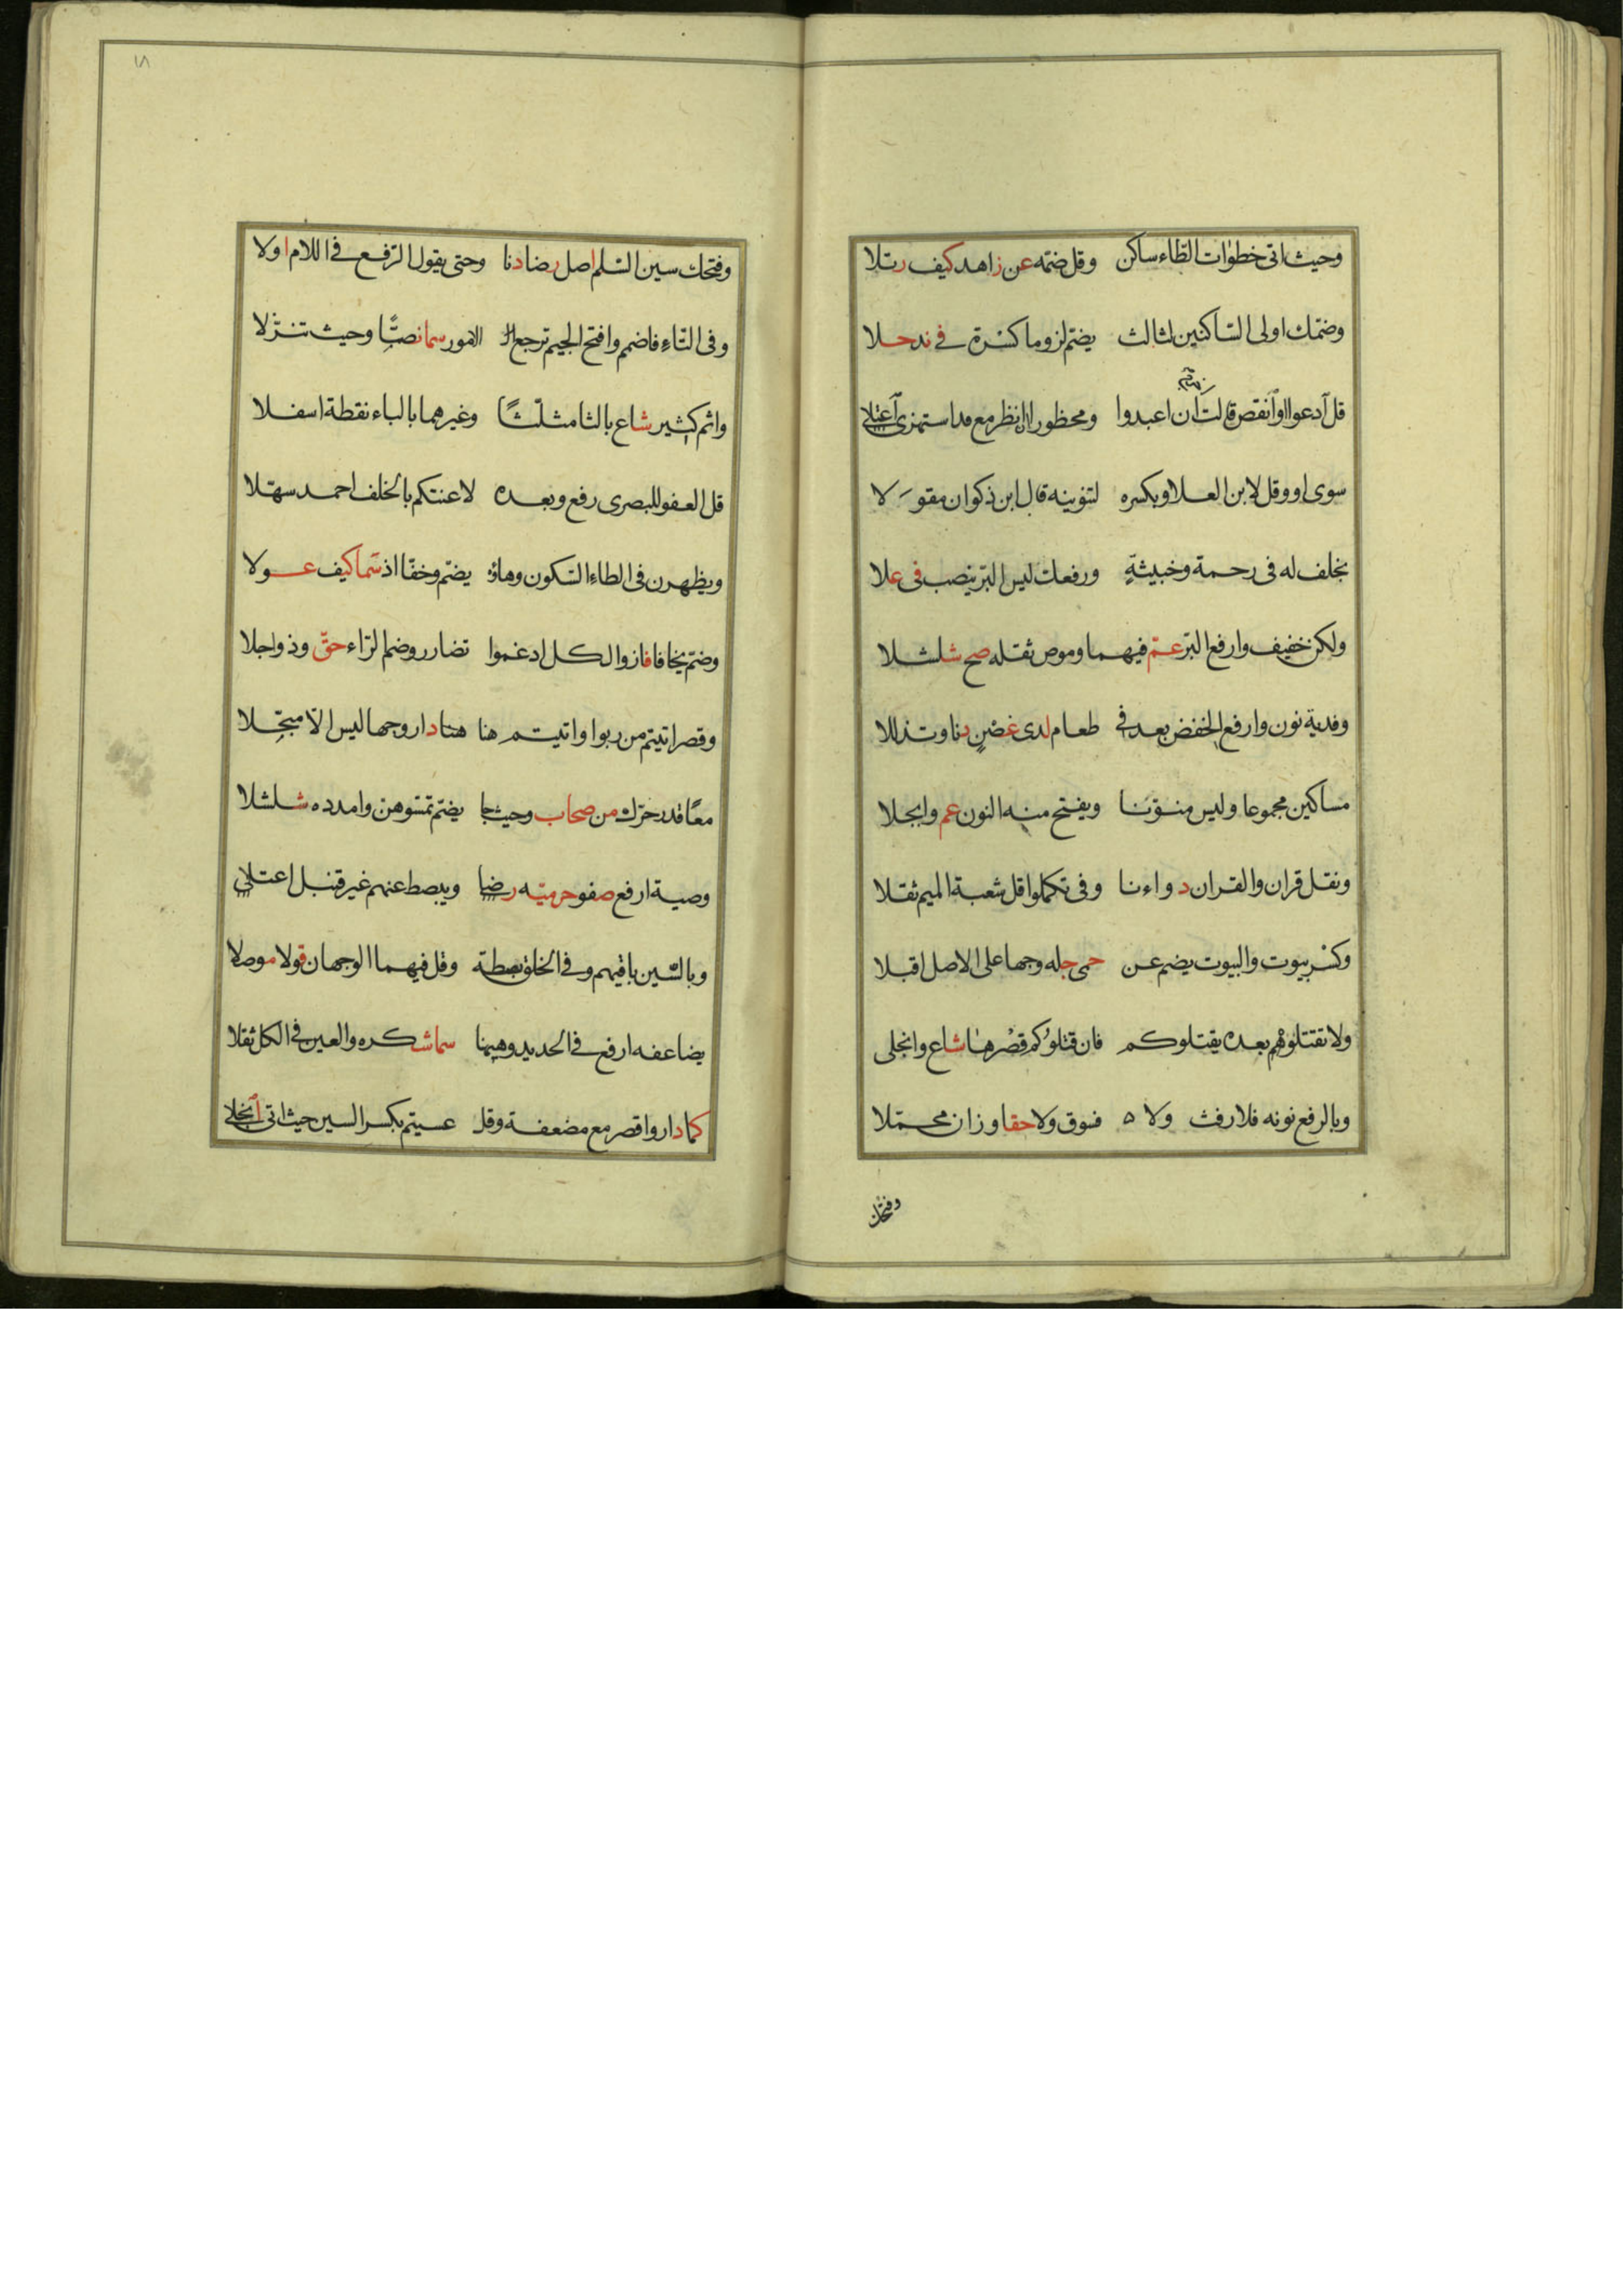 وحيث اتى خطوات الطاء ساكن وقل ضمّه عن زاهد كيف رتلا
وضمّك اولى الساكنين لثالث يضمّ لزوما كسره فى ند حلا
قل ادعوا او انقص قالت ان اعبدوا ومحظورا ن انظر مع قد استهزئ اعتلى
سوى او وقل لابن العلا وبكسره لتنوينه قال ابن ذكوان مقولا
بخلف له فى رحمة وخبيثةٍ ورفعك ليس البرّ ينصب فى علا
ولكن خفيف وارفع البرّ عمّ فيهما وموص ثقله صح شلشلا
وفدية نون وارفع الخفض بعد فى طعام لدى غصنٍ دنا وتذللا
مساكين مجموعا وليس منوّنا ويفتح منه النون عم وابجلا
ونقل قران والقران دواءنا وفى تكملوا قل شعبة الميم ثقلا
وكسر بيوت والبيوت يضم عن حمى جله وجها على الاصل اقبلا
ولا تقتلوهم بعده يقتلوكم فان قتلوكم قصرها شاع وانجلى
وبالرفع نونه فلا رفث ولا ٥ فسوق ولا حقا وزان محمّلا
وفتحك
١٨
وفتحك سين السّلم اصل رضا دنا وحتى يقول الرّفع فى اللام اولا
وفى التّاءِ فاضمم وافتح الجيم ترجع الـ الامور سما نصّا وحيث تنزّلا
واثم كثير شاع بالثا مثلّثًا وغيرهما بالباء نقطة اسفلا
قل العفو للبصرى رفع وبعده لاعنتكم بالخلف احمد سهّلا
ويطهرن فى الطاء السّكون وهاؤه يضمّ وخفّا اذ سما كيف عولا
وضمّ يخافا فاز والكل ادغموا تضارر وضم الرّاء حقّ وذو جلا
وقصر اتيتم من ربوا واتيتم هنا هنا دار وجها ليس الّا مبجّلا
معًا قدر حرّك من صحاب وحيث جا يضمّ تمسّوهن وامدده شلشلا
وصية ارفع صفو حرميّه رضا ويبصط عنهم غير قنبل اعتلى
وبالسّين باقيهم وفى الخلق بصطة وقل فيهما الوجهان قولا موصلا
يضاعفه ارفع فى الحديد وههنا سما شكره والعين فى الكل ثقلا
كما دار واقصر مع مضعفة وقل عسيتم بكسر السين حيث اتى انجلى